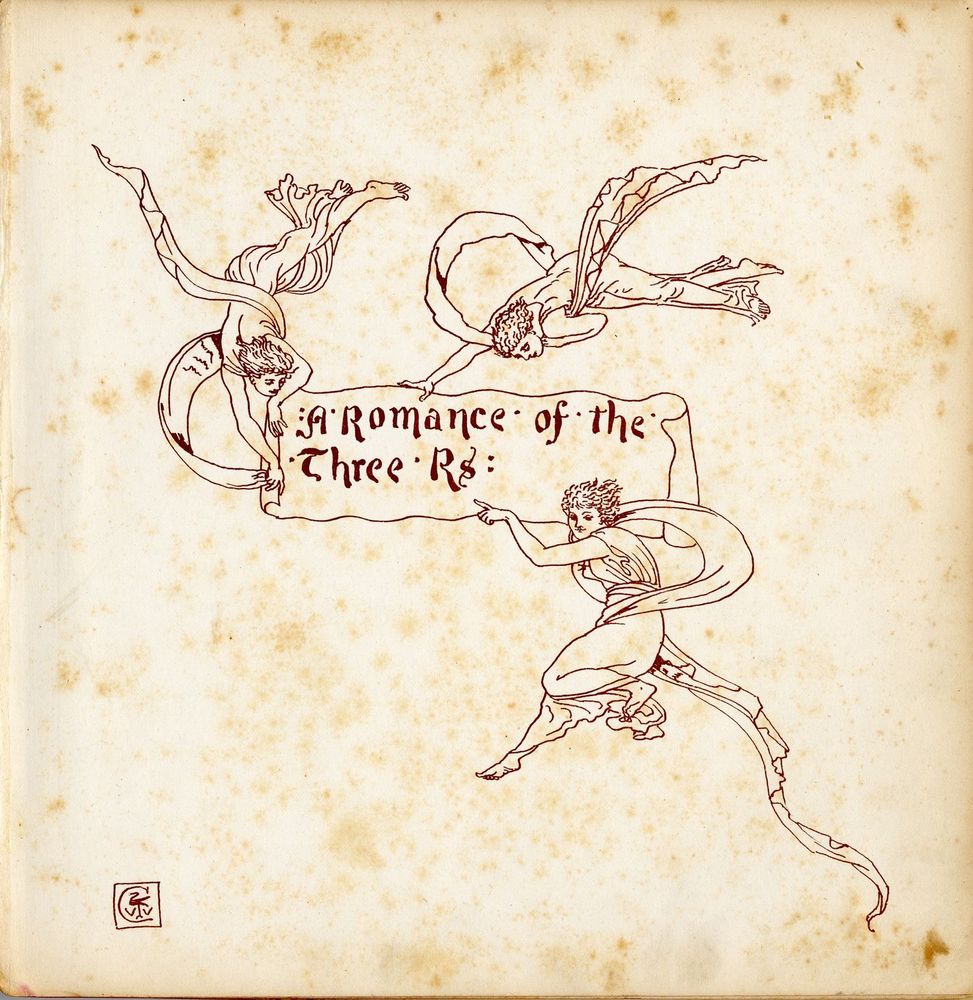 :A·Romance·of·the·
·Three·Rs: